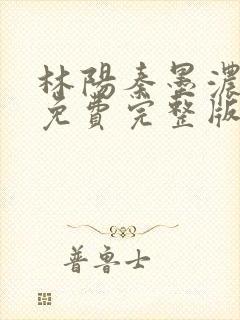 林陽秦墨濃
免費完整版
普魯士